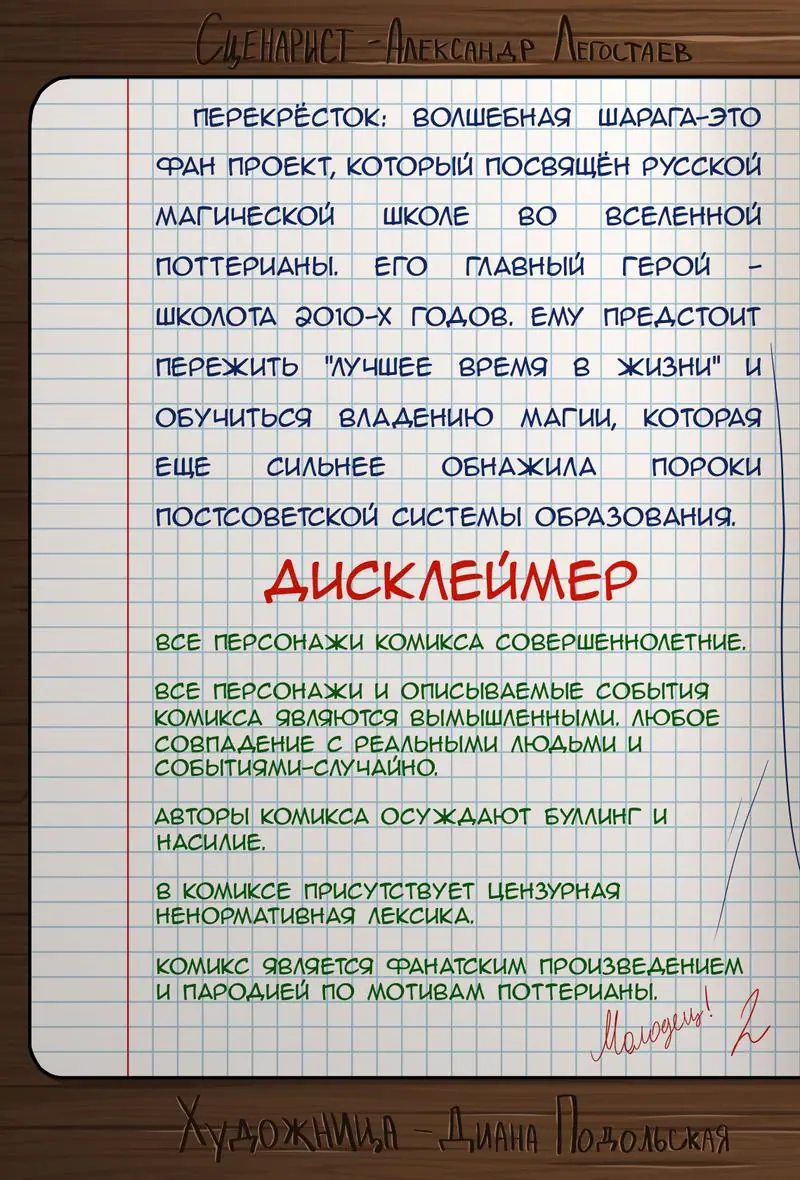 Сценарист - Александр Легостаев
ПЕРЕКРЁСТОК: ВОЛШЕБНАЯ ШАРАГА-ЭТО
ФАН ПРОЕКТ, КОТОРЫЙ ПОСВЯЩЁН РУССКОЙ
МАГИЧЕСКОЙ ШКОЛЕ ВО ВСЕЛЕННОЙ
ПОТТЕРИАНЫ. ЕГО ГЛАВНЫЙ ГЕРОЙ -
ШКОЛОТА 2010-Х ГОДОВ. ЕМУ ПРЕДСТОИТ
ПЕРЕЖИТЬ "ЛУЧШЕЕ ВРЕМЯ В ЖИЗНИ" И
ОБУЧИТЬСЯ ВЛАДЕНИЮ МАГИИ, КОТОРАЯ
ЕЩЕ СИЛЬНЕЕ ОБНАЖИЛА ПОРОКИ
ПОСТСОВЕТСКОЙ СИСТЕМЫ ОБРАЗОВАНИЯ.
ДИСКЛЕЙМЕР
ВСЕ ПЕРСОНАЖИ КОМИКСА СОВЕРШЕННОЛЕТНИЕ.
ВСЕ ПЕРСОНАЖИ И ОПИСЫВАЕМЫЕ СОБЫТИЯ
КОМИКСА ЯВЛЯЮТСЯ ВЫМЫШЛЕННЫМИ. ЛЮБОЕ
СОВПАДЕНИЕ С РЕАЛЬНЫМИ ЛЮДЬМИ И
СОБЫТИЯМИ-СЛУЧАЙНО.
АВТОРЫ КОМИКСА ОСУЖДАЮТ БУЛЛИНГ И
НАСИЛИЕ.
В КОМИКСЕ ПРИСУТСТВУЕТ ЦЕНЗУРНАЯ
НЕНОРМАТИВНАЯ ЛЕКСИКА.
КОМИКС ЯВЛЯЕТСЯ ФАНАТСКИМ ПРОИЗВЕДЕНИЕМ
И ПАРОДИЕЙ ПО МОТИВАМ ПОТТЕРИАНЫ.
Молодец! 2
Художница - Диана Подольская